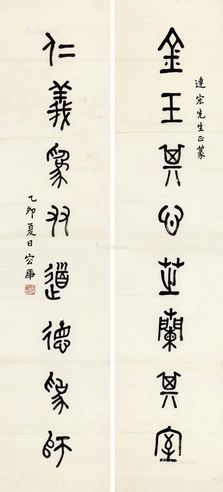 達宏先生正篆
金玉其心芝蘭其室
仁義為友道德為師
乙卯夏日容庚